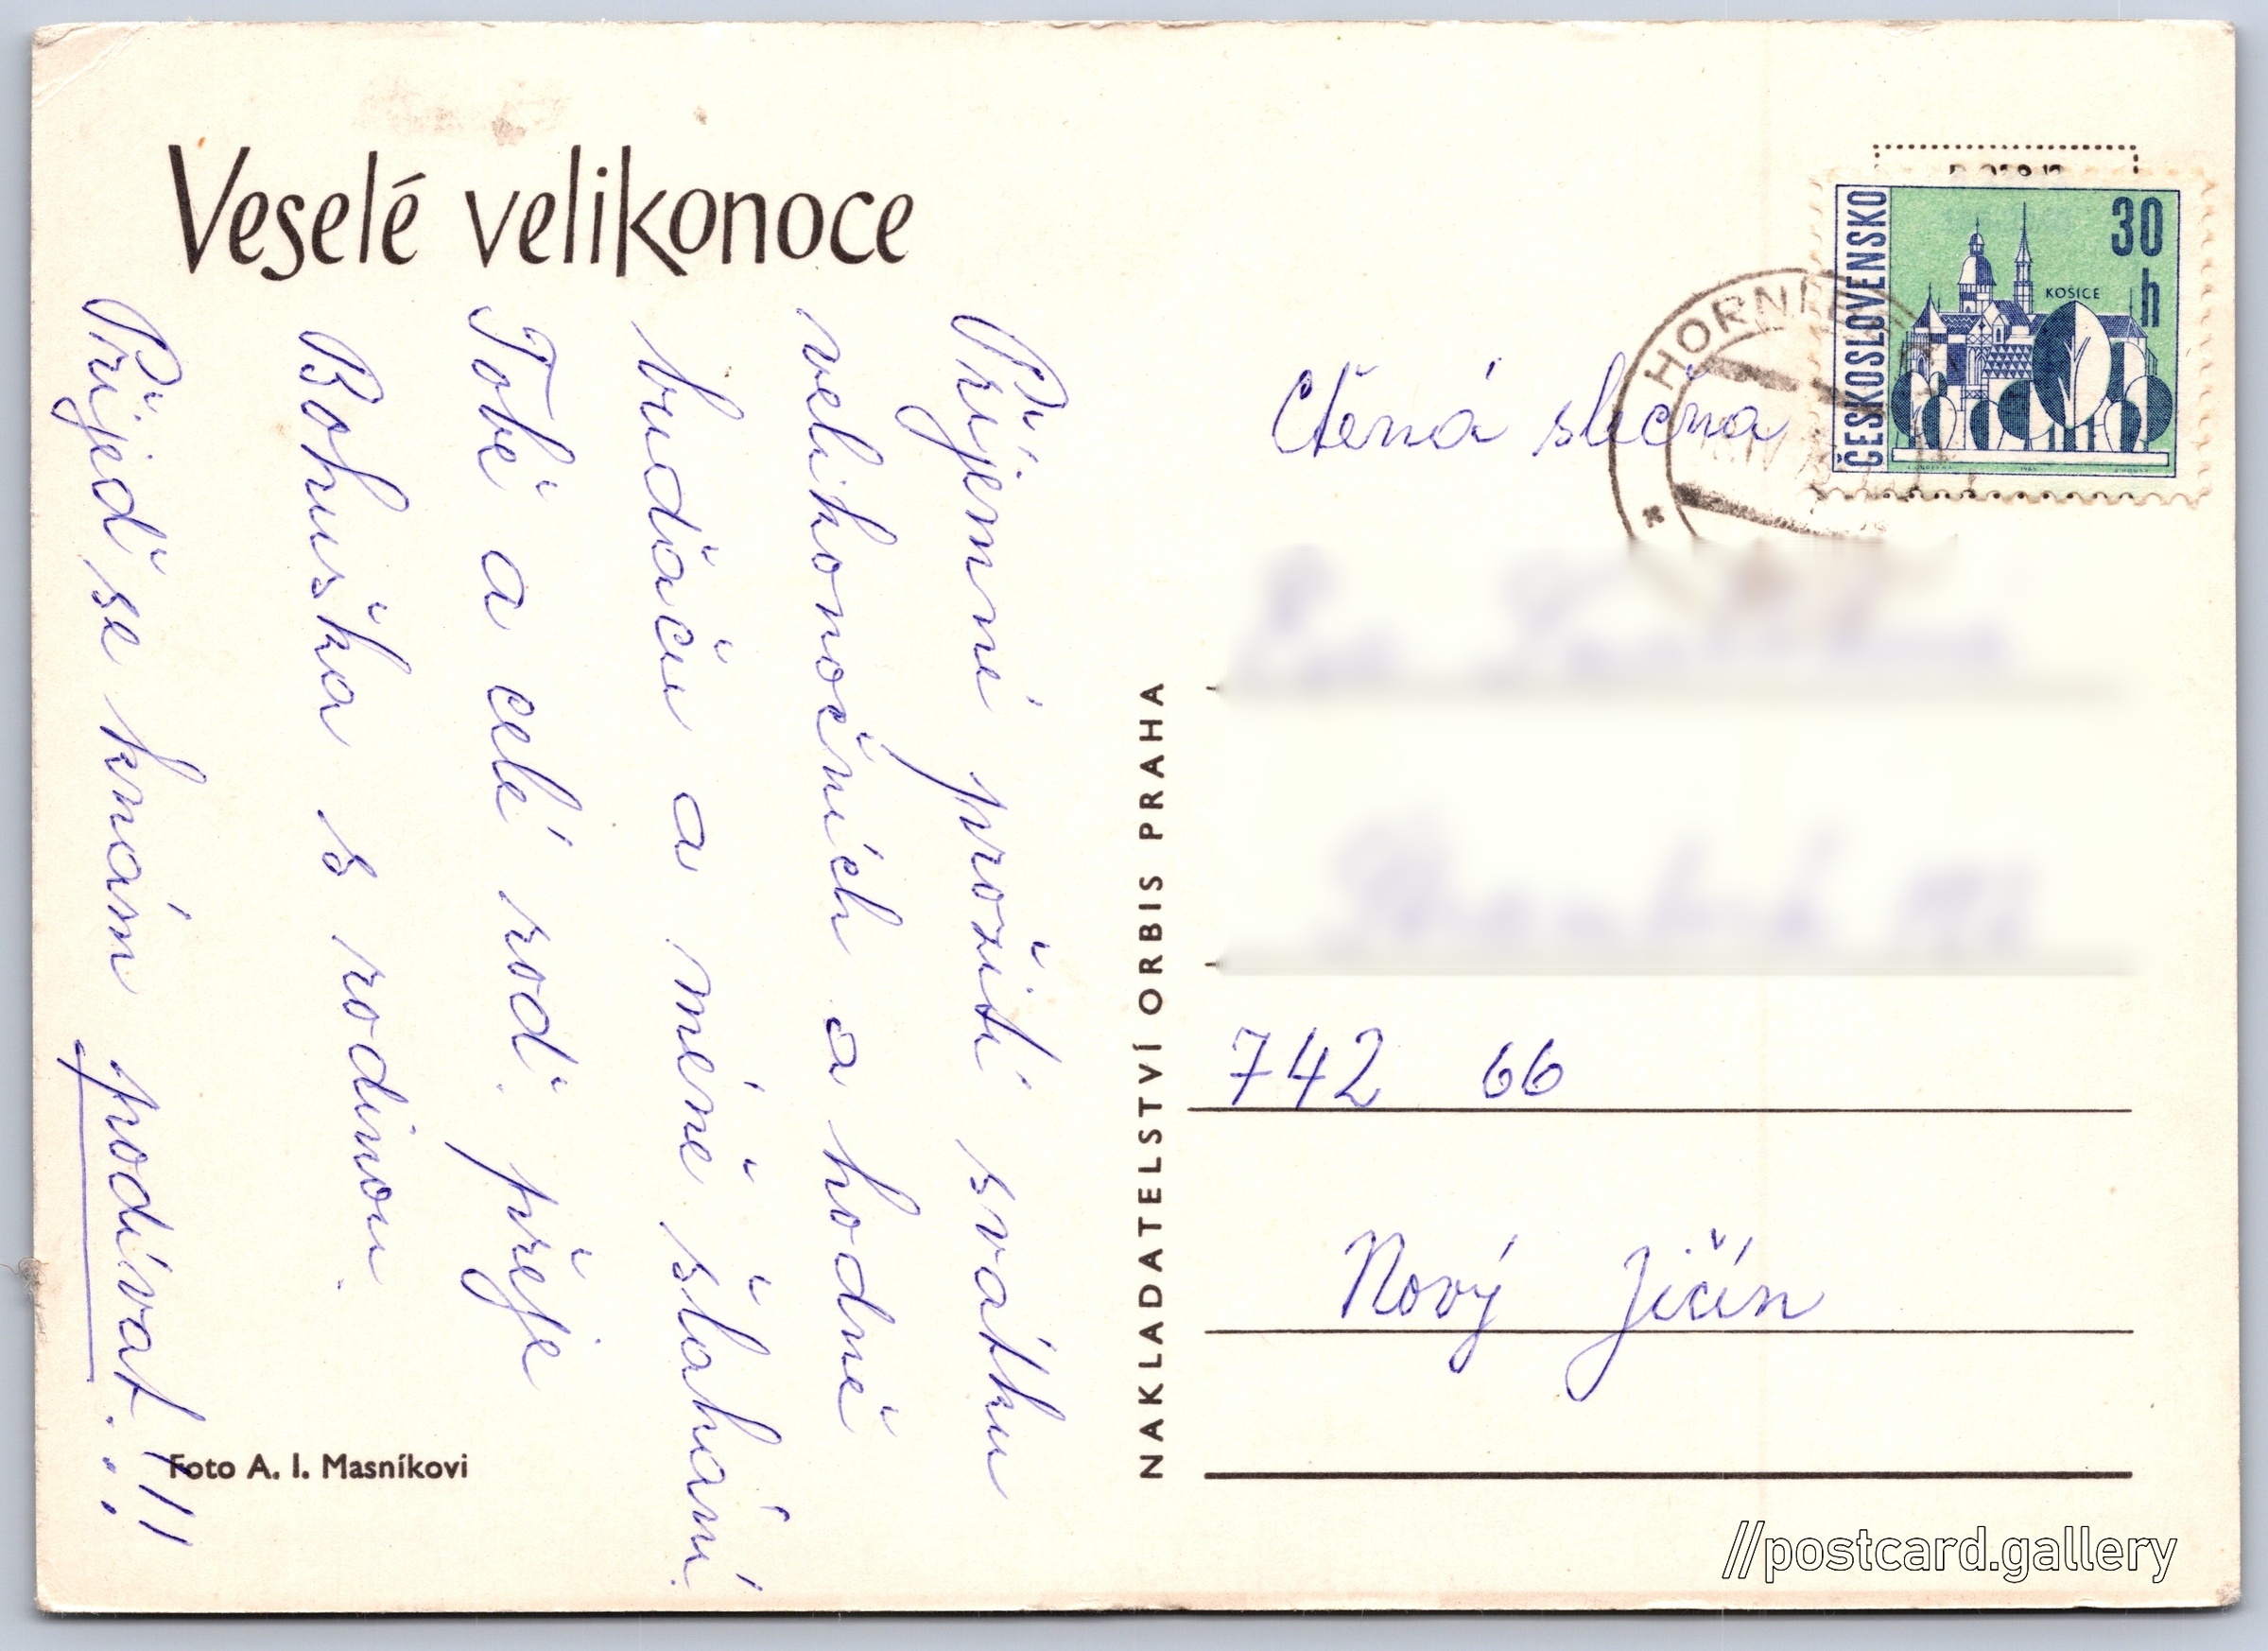 Veselé velikonoce
Příjemné prožití svátku
velikonočních a hodně
budáču a méně šlahání
Tobě a celé rod. přeje
Bohuška s rodinou.
Přijeď se knám podívat!!!
Foto A. I. Masníkovi
NAKLADATELSTVÍ ORBIS PRAHA
ČESKOSLOVENSKO
30
h
KOŠICE
HORNÍ
Ctěná slečna
742 66
Nový Jičín
//postcard.gallery